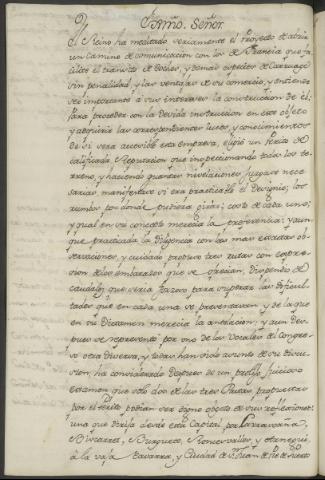 Ilmo. Señor.
El Reino ha meditado seriamente el Proyecto de abrir
un camino de comunicacion con los de Francia que fa-
cilite el transito de coches, y demas especies de Carruages
sin penalidad, y las ventajas de su comercio, y entiende
ser importante à sus intereses la construccion de él:
Para proceder con la devida instruccion en este objeto
y adquirir las correspondientes luces, y conocimientos
de si sera accesible esta empresa, eligió un Perito de
calificada reputacion que inspeccionando todo los te-
rrenos, y haciendo quantas nivelaciones juzgase nece-
sarias manifestase si era practicable el Designio; los
rumbos por donde pudiera girar; coste de cada uno;
y qual en su concepto merecia la preferencia: y aun-
que practicada la diligencia con las mas exactas ob-
servaciones, y cuidado propuso tres rutas con expre-
sion de los embarazos que se ofrecian, Dispendio de
caudales que seria forzoso para superar las dificul-
tades que en cada una se presentavan y de la que
en su Dictamen merecia la anelacion; y aun des-
pues se representó por uno de los Vocales del Congre-
so otra diversa, y todas han sido asunto de su discu-
sion, ha considerado despues de un prolijo, juicioso
examen que solo dos de las tres Rutas, propuestas
por el Perito podian ser digno objeto de sus reflexiones:
una que dirija desde esta Capital, por Larrasoaña,
Biscarret, Burguete, Roncesvalles, y Arnegui,
à la vaja Navarra, y Ciudad de Sn. Juan de Pie de Puerto